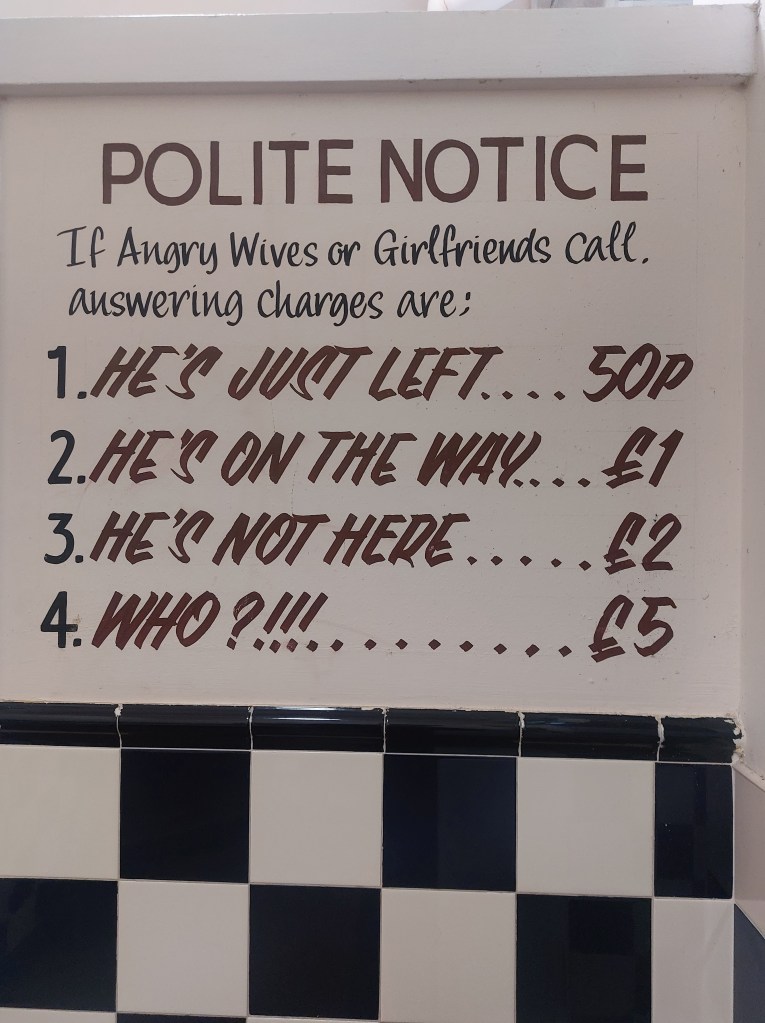 POLITE NOTICE
If Angry Wives or Girlfriends Call.
answering charges are;
1. HE'S JUST LEFT.... 50P
2. HE'S ON THE WAY.... £1
3. HE'S NOT HERE..... £2
4. WHO?!!!.......... £5